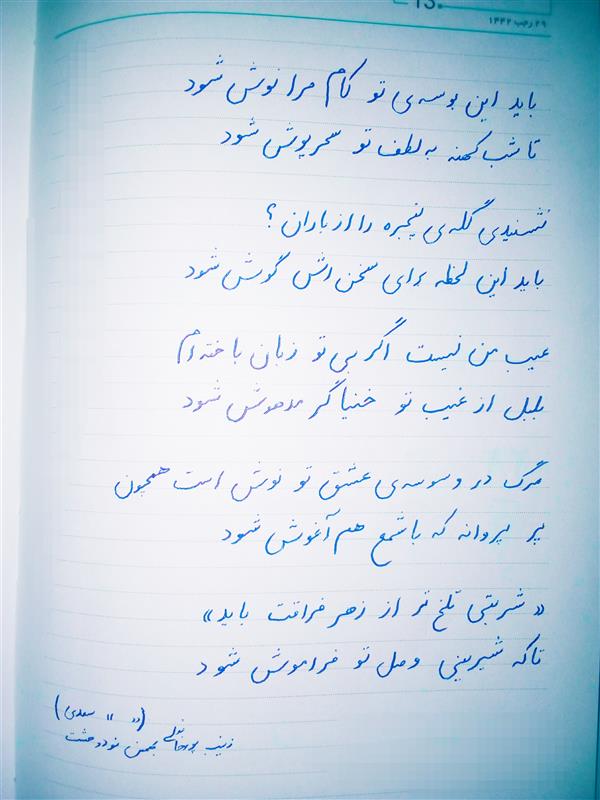 13
۲۹ رجب ۱۴۴۲
باید این بوسه‌ی تو کام مرا نوش شود
تا شب کهنه به لطف تو سحرپوش شود
نشنیدی گله‌ی پنجره را از باران؟
باید این لحظه برای سخن اش گوش شود
عیب من نیست اگر بی تو زبان باخته‌ام
بلبل از غیب تو خنیاگر مدهوش شود
مرگ در وسوسه‌ی عشق تو نوش است همچون
پر پروانه که با شمع هم آغوش شود
« شربتی تلخ تر از زهر فراقت باید »
تا که شیرینی وصل تو فراموش شود
(« » سعدی)
زینب بهمن نود و هشت